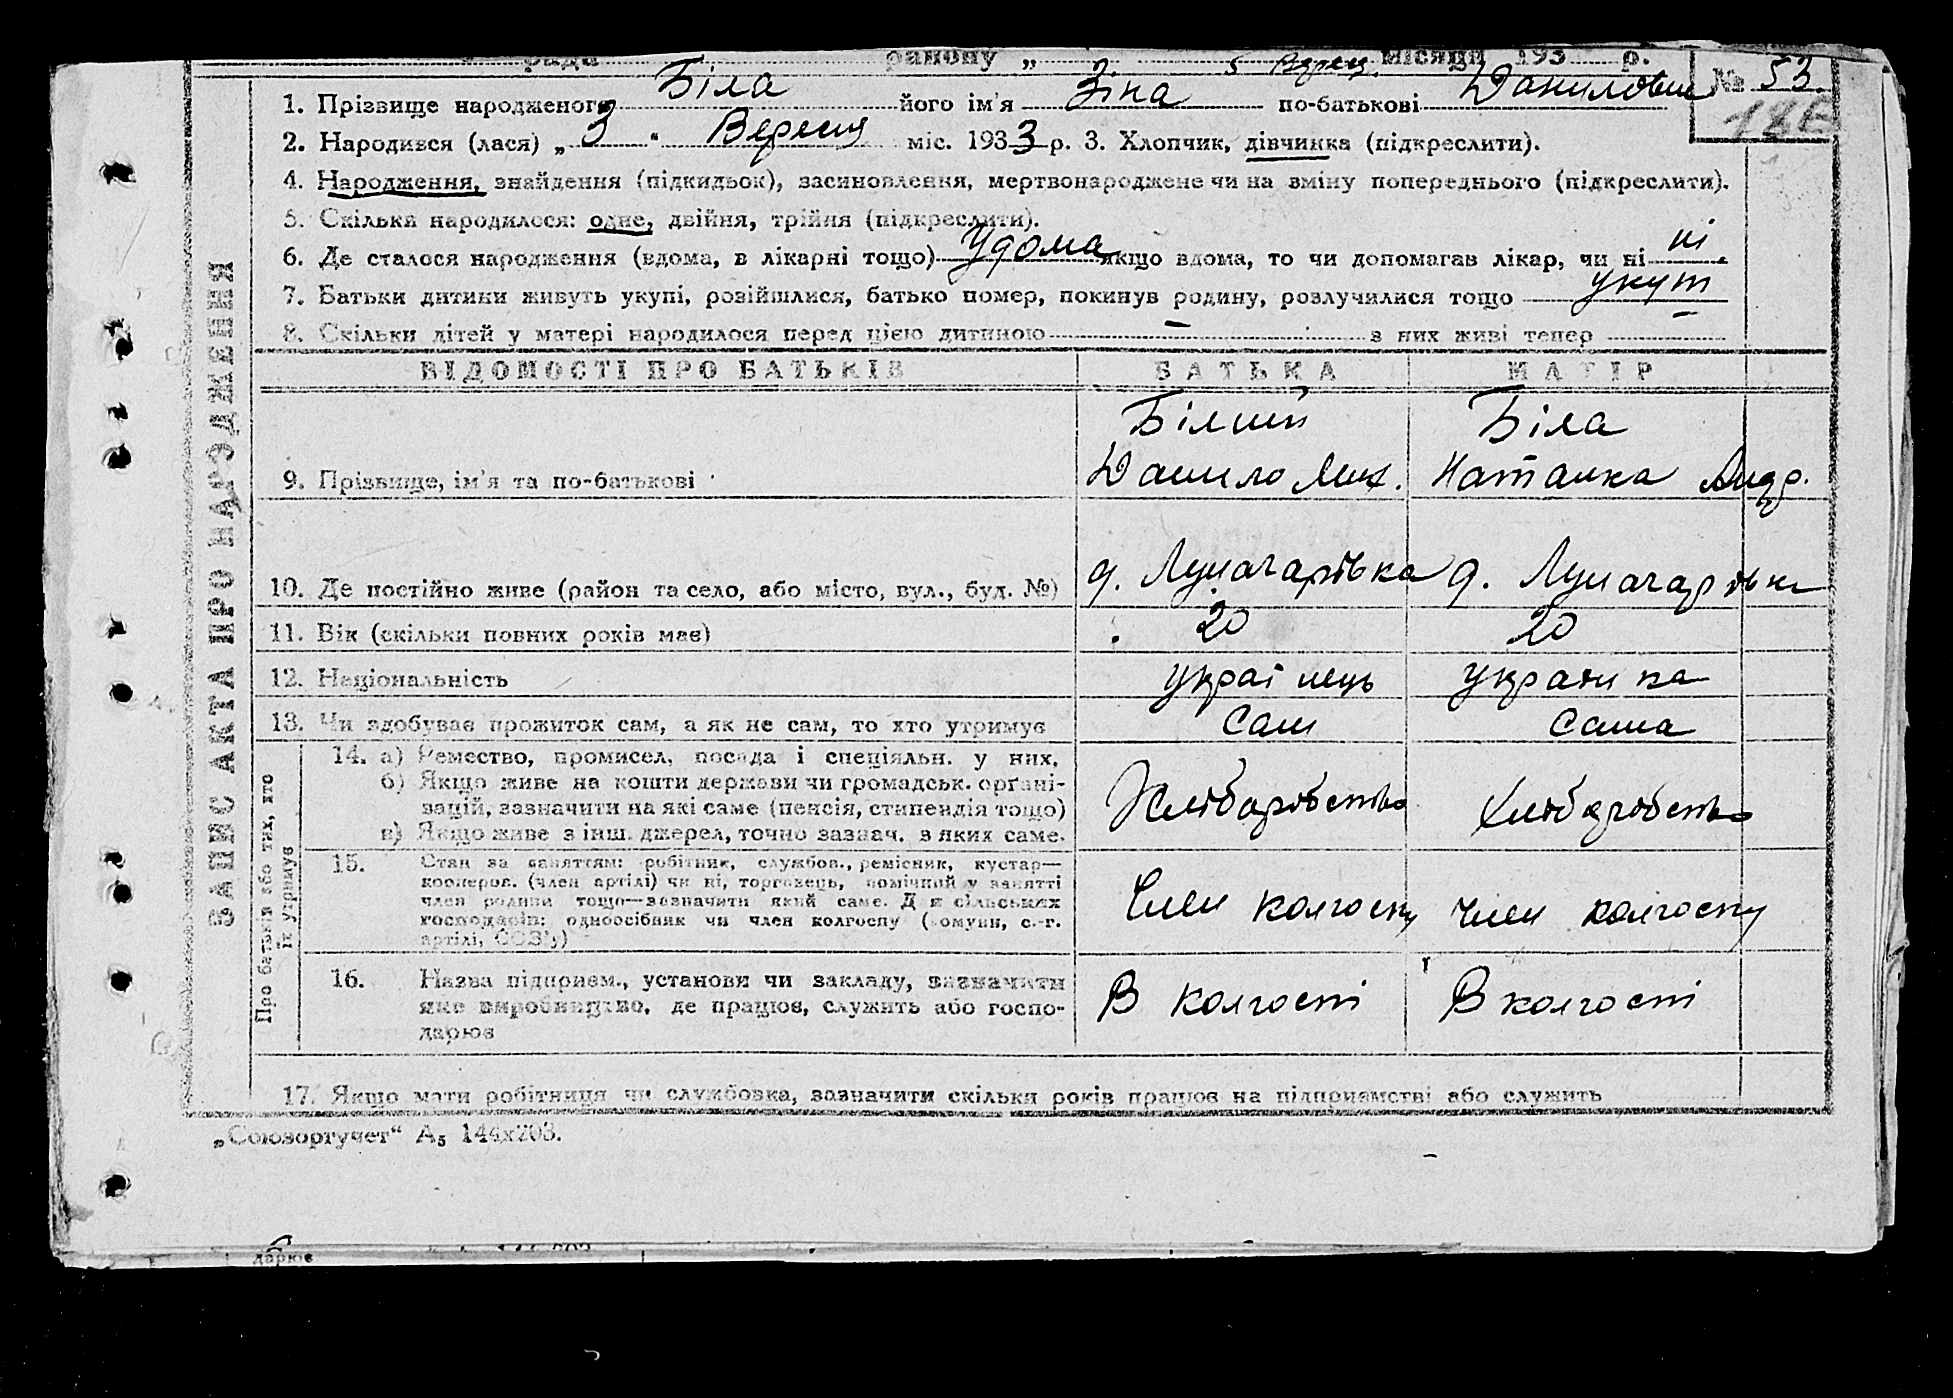 рада району „ 5 Верес. місяця 193 р.
№ 53.
1. Прізвище народженого Біла його ім'я Зіна по-батькові Данилович
2. Народився (лася) „ 3 " Вересня міс. 1933 р. 3. Хлопчик, дівчинка (підкреслити).
4. Народження, знайдення (підкидьок), засиновлення, мертвонароджене чи на зміну попереднього (підкреслити).
5. Скільки народилося: одне, двійня, трійня (підкреслити).
6. Де сталося народження (вдома, в лікарні тощо) Удома якщо вдома, то чи допомагав лікар, чи ні ні
7. Батьки дитини живуть укупі, розійшлися, батько помер, покинув родину, розлучилися тощо укупі
8. Скільки дітей у матері народилося перед цією дитиною – з них живі тепер –
ЗАПИС АКТА ПРО НАРОДЖЕННЯ
ВІДОМОСТІ ПРО БАТЬКІВ БАТЬКА МАТІР
Білий Біла
9. Прізвище, ім'я та по-батькові Данило Мих. Наталка Андр.
10. Де постійно живе (район та село, або місто, вул., буд. №) д. Луначарівка д. Луначарівка
11. Вік (скільки повних років має) 20 20
12. Національність українець українка
13. Чи здобуває прожиток сам, а як не сам, то хто утримує Сам Сама
Про батьків або тих, хто
їх утримує
14. а) Ремество, промисел, посада і спеціяльн. у них.
б) Якщо живе на кошти держави чи громадськ. орґані-
зацій, зазначити на які саме (пенсія, стипендія тощо)
в) Якщо живе з інш. джерел, точно зазнач. з яких саме.
Хлібаробство Хлібаробство
15. Стан за заняттям: робітник, службов., ремісник, кустар—
кооперов. (член артілі) чи ні, торговець, помічний у занятті
член родини тощо—зазначити який саме. Для сільських
господарів: одноосібник чи член колгоспу (комуни, с.-г.
артілі, СОЗ'у)
Член колгоспу член колгоспу
16. Назва підприєм., установи чи закладу, зазначити
яке виробництво, де працює, служить або госпо-
дарює
В колгоспі В колгоспі
17. Якщо мати робітниця чи службовка, зазначити скільки років працює на підприємстві або служить
„Союзоргучет" А5 144х203.
дарює